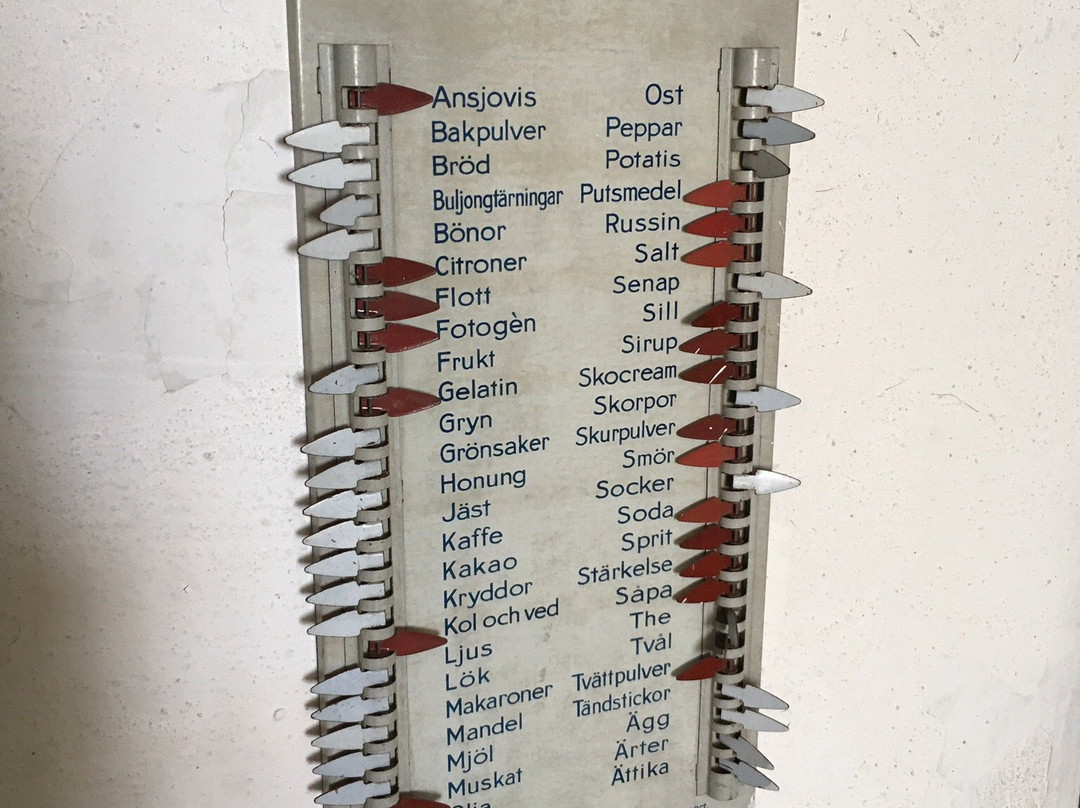 Ansjovis
Bakpulver
Bröd
Buljongtärningar
Bönor
Citroner
Flott
Fotogèn
Frukt
Gelatin
Gryn
Grönsaker
Honung
Jäst
Kaffe
Kakao
Kryddor
Kol och ved
Ljus
Lök
Makaroner
Mandel
Mjöl
Muskat
Ost
Peppar
Potatis
Putsmedel
Russin
Salt
Senap
Sill
Sirup
Skocream
Skorpor
Skurpulver
Smör
Socker
Soda
Sprit
Stärkelse
Såpa
The
Tvål
Tvättpulver
Tändstickor
Ägg
Ärter
Ättika